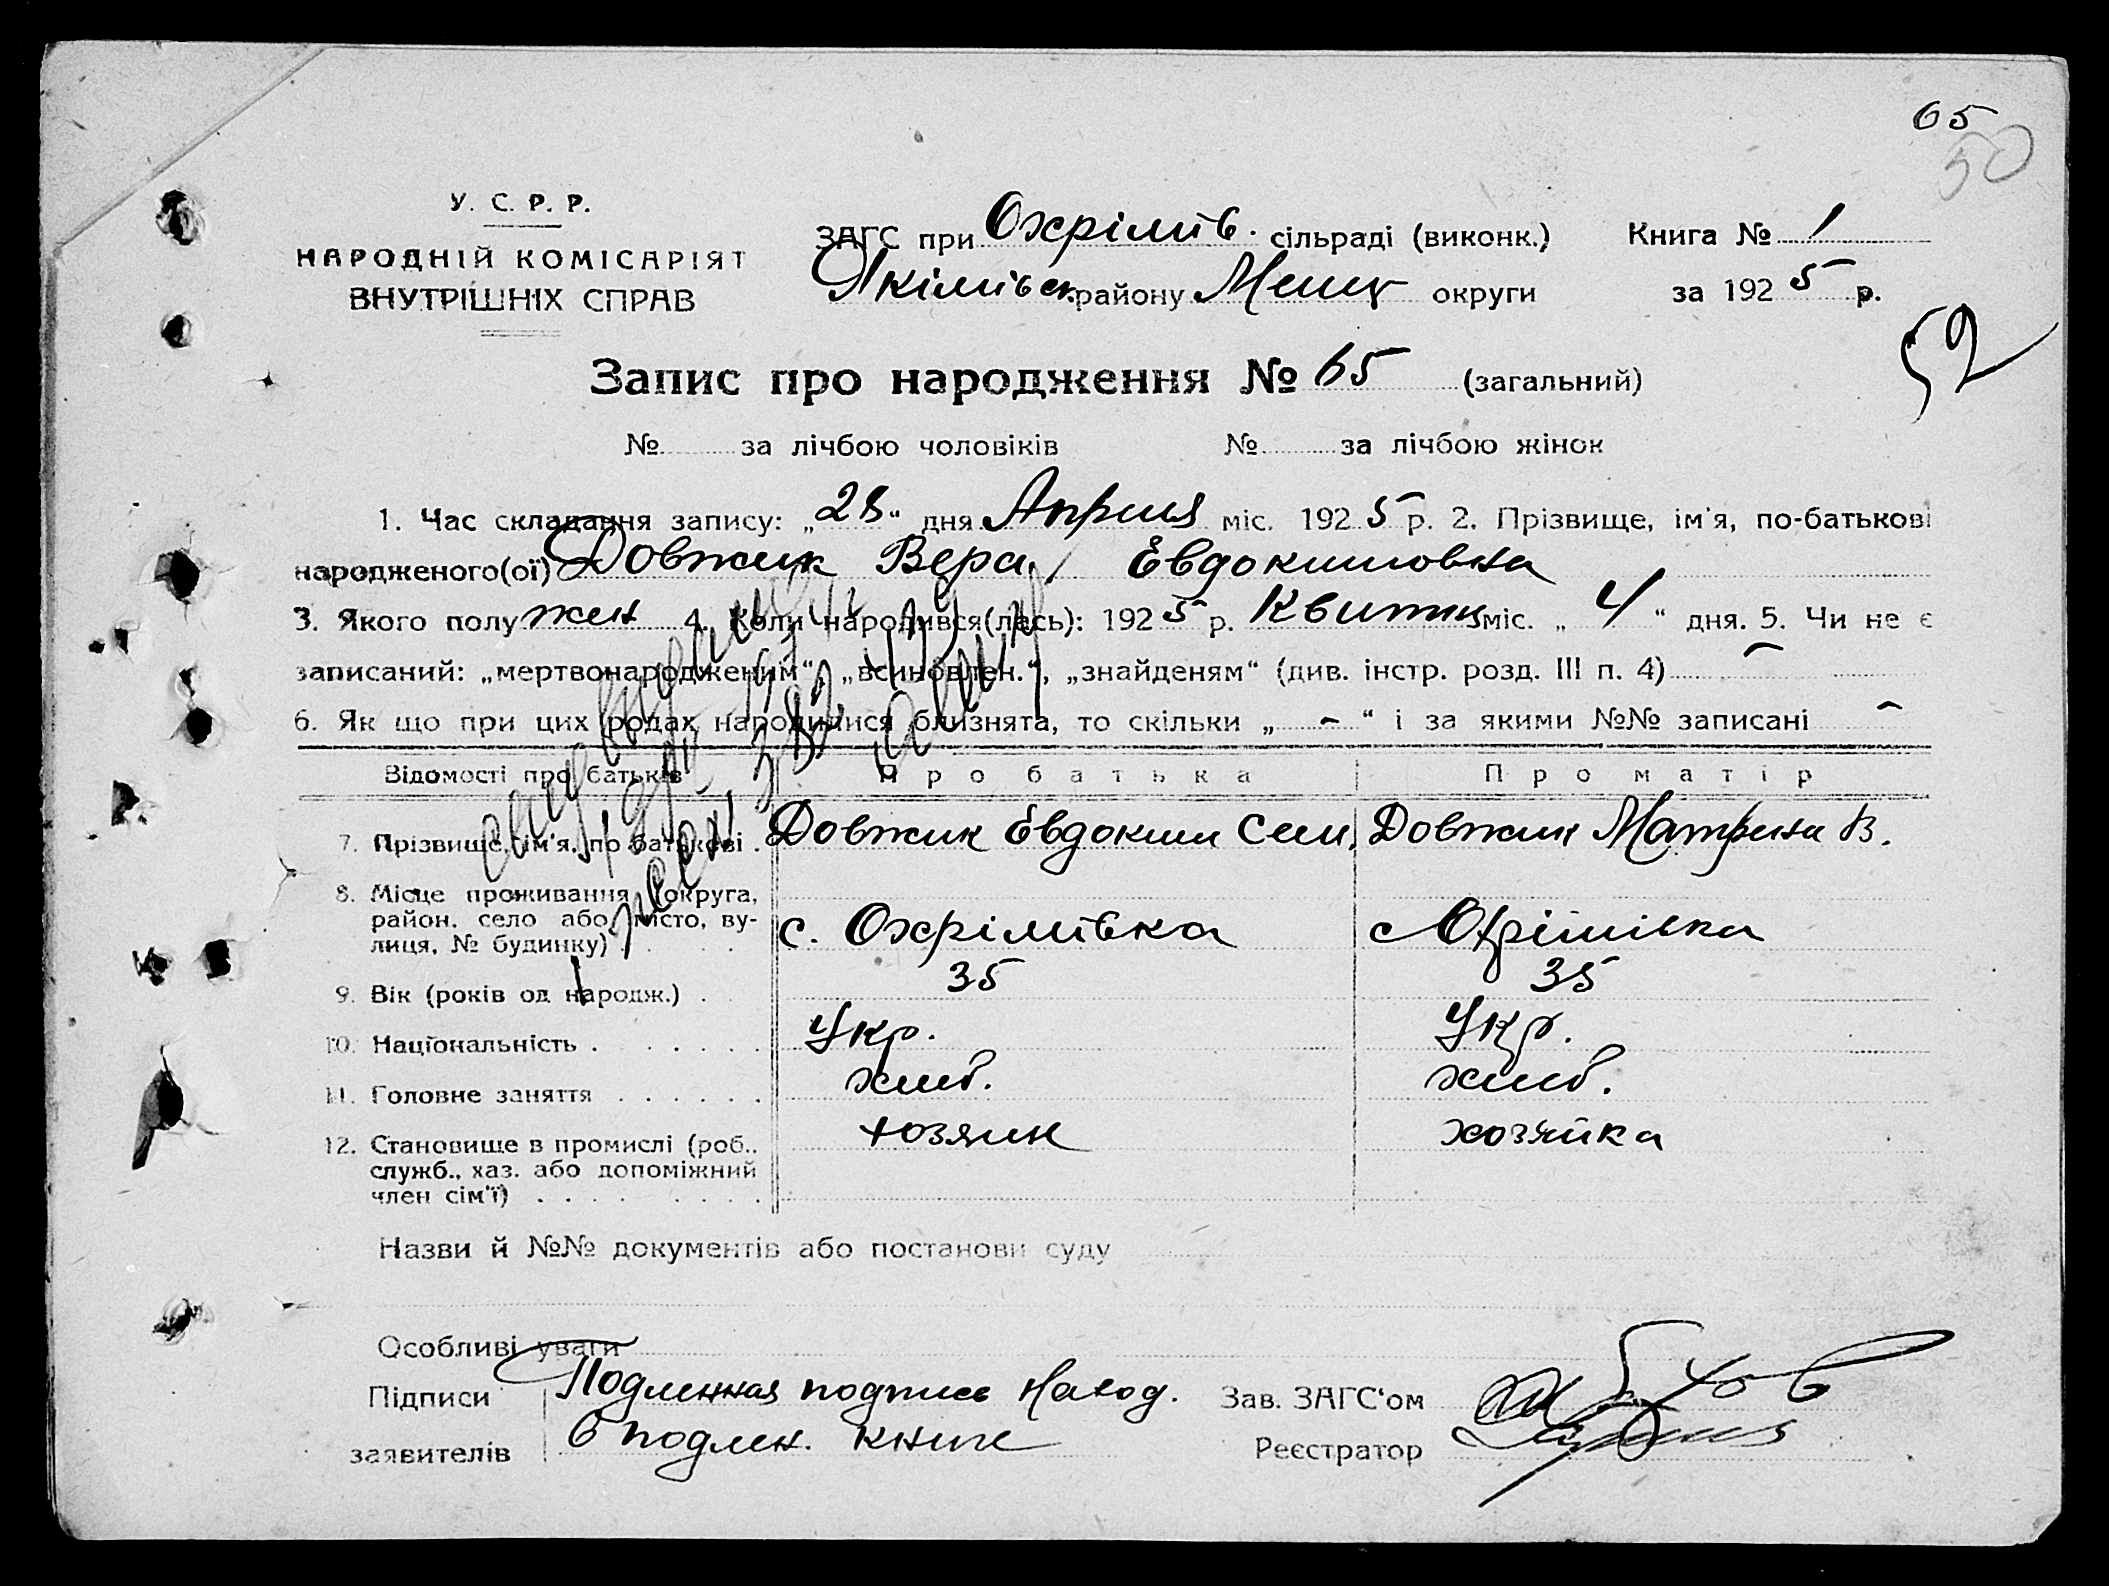 65
50
У. С. Р. Р.
НАРОДНІЙ КОМІСАРІЯТ
ВНУТРІШНІХ СПРАВ
ЗАГС при Охріміїв. сільраді (виконк.)
Якімівськ району Меліт округи
Книга № 1
за 1925 р.
52
Запис про народження № 65 (загальний)
№ за лічбою чоловіків № за лічбою жінок
1. Час складання запису: „28“ дня Апреля міс. 1925 р. 2. Прізвище, ім'я, по-батькові
народженого(ої) Довжик Вера Евдокимовна
3. Якого полу жен 4. Коли народився(лась): 1925 р. Квитня міс. „4“ дня. 5. Чи не є
записаний: „мертвонародженим“, „всиновлен.“, „знайденям“ (див. інстр. розд. III п. 4) –
6. Як що при цих родах народилися близнята, то скільки „ – “ і за якими №№ записані –
Відомості про батьків Про батька Про матір
7. Прізвище, ім'я, по батькові . Довжик Евдоким Сем. Довжик Матрена В.
8. Місце проживання (округа,
район, село або місто, ву-
лиця, № будинку) с. Охрімівка с Охрімівка
9. Вік (років од народж.) . 35 35
10. Національність . Укр. Укр.
11. Головне заняття хліб. хліб.
12. Становище в промислі (роб., хозяин хозяйка
служб., хаз. або допоміжний
член сім'ї)
Назви й №№ документів або постанови суду
Особливі уваги
Підписи Подленная подпись наход. Зав. ЗАГС'ом
заявителів в подлен. книге Реєстратор